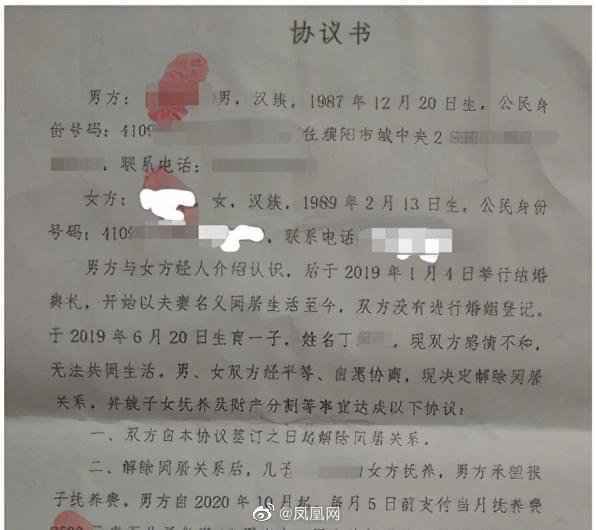 协议书
男方： 男，汉族，1987年12月20日生，公民身
份号码：4109 住濮阳市城中央2
，联系电话：
女方： ，女，汉族，1989年2月13日生，公民身份
号码：4109 ，联系电话
男方与女方经人介绍认识，后于2019年1月4日举行结婚
典礼，开始以夫妻名义同居生活至今，双方没有进行婚姻登记。
于2019年6月20日生育一子，姓名丁 ，现双方感情不和，
无法共同生活，男、女双方经平等、自愿协商，现决定解除同居
关系，并就子女抚养及财产分割等事宜达成以下协议：
一、双方自本协议签订之日起解除同居关系.
二、解除同居关系后，儿子 女方抚养，男方承担孩
子抚养费，男方自2020年10月起，每月5日前支付当月抚养费
@凤凰网